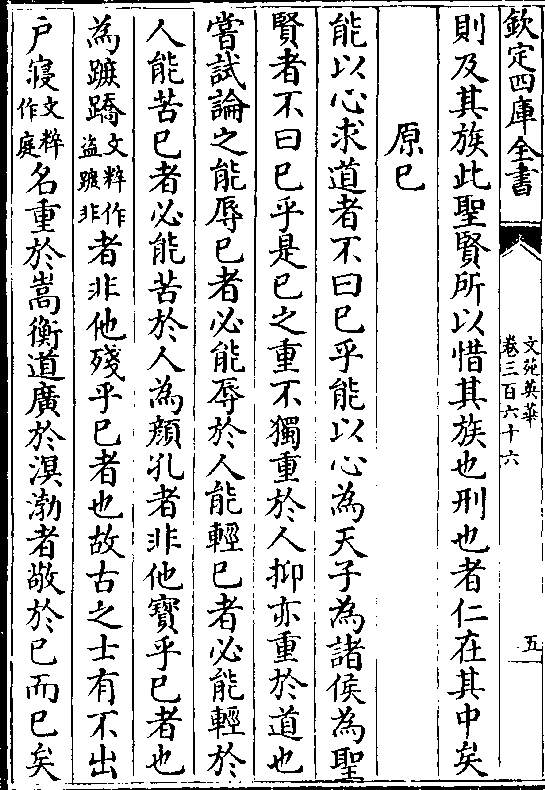 欽定四庫全書
文苑英華
卷三百六十六
五
則及其族此聖賢所以惜其族也刑也者仁在其中矣
原已
能以心求道者不曰已乎能以心為天子為諸侯為聖
賢者不曰已乎是已之重不獨重於人抑亦重於道也
嘗試論之能辱已者必能辱於人能輕已者必能輕於
人能苦已者必能苦於人為顔孔者非他寶乎已者也
為蹠蹻文粹作盜蹠非者非他殘乎已者也故古之士有不出
户寑文粹作庭名重於嵩衡道廣於溟渤者敬於已而已矣